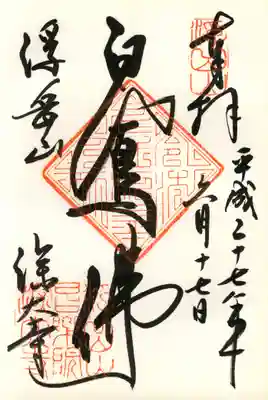 奉拝
平成二十七年十
月十七日
白鳳佛
浮岳山
深大寺